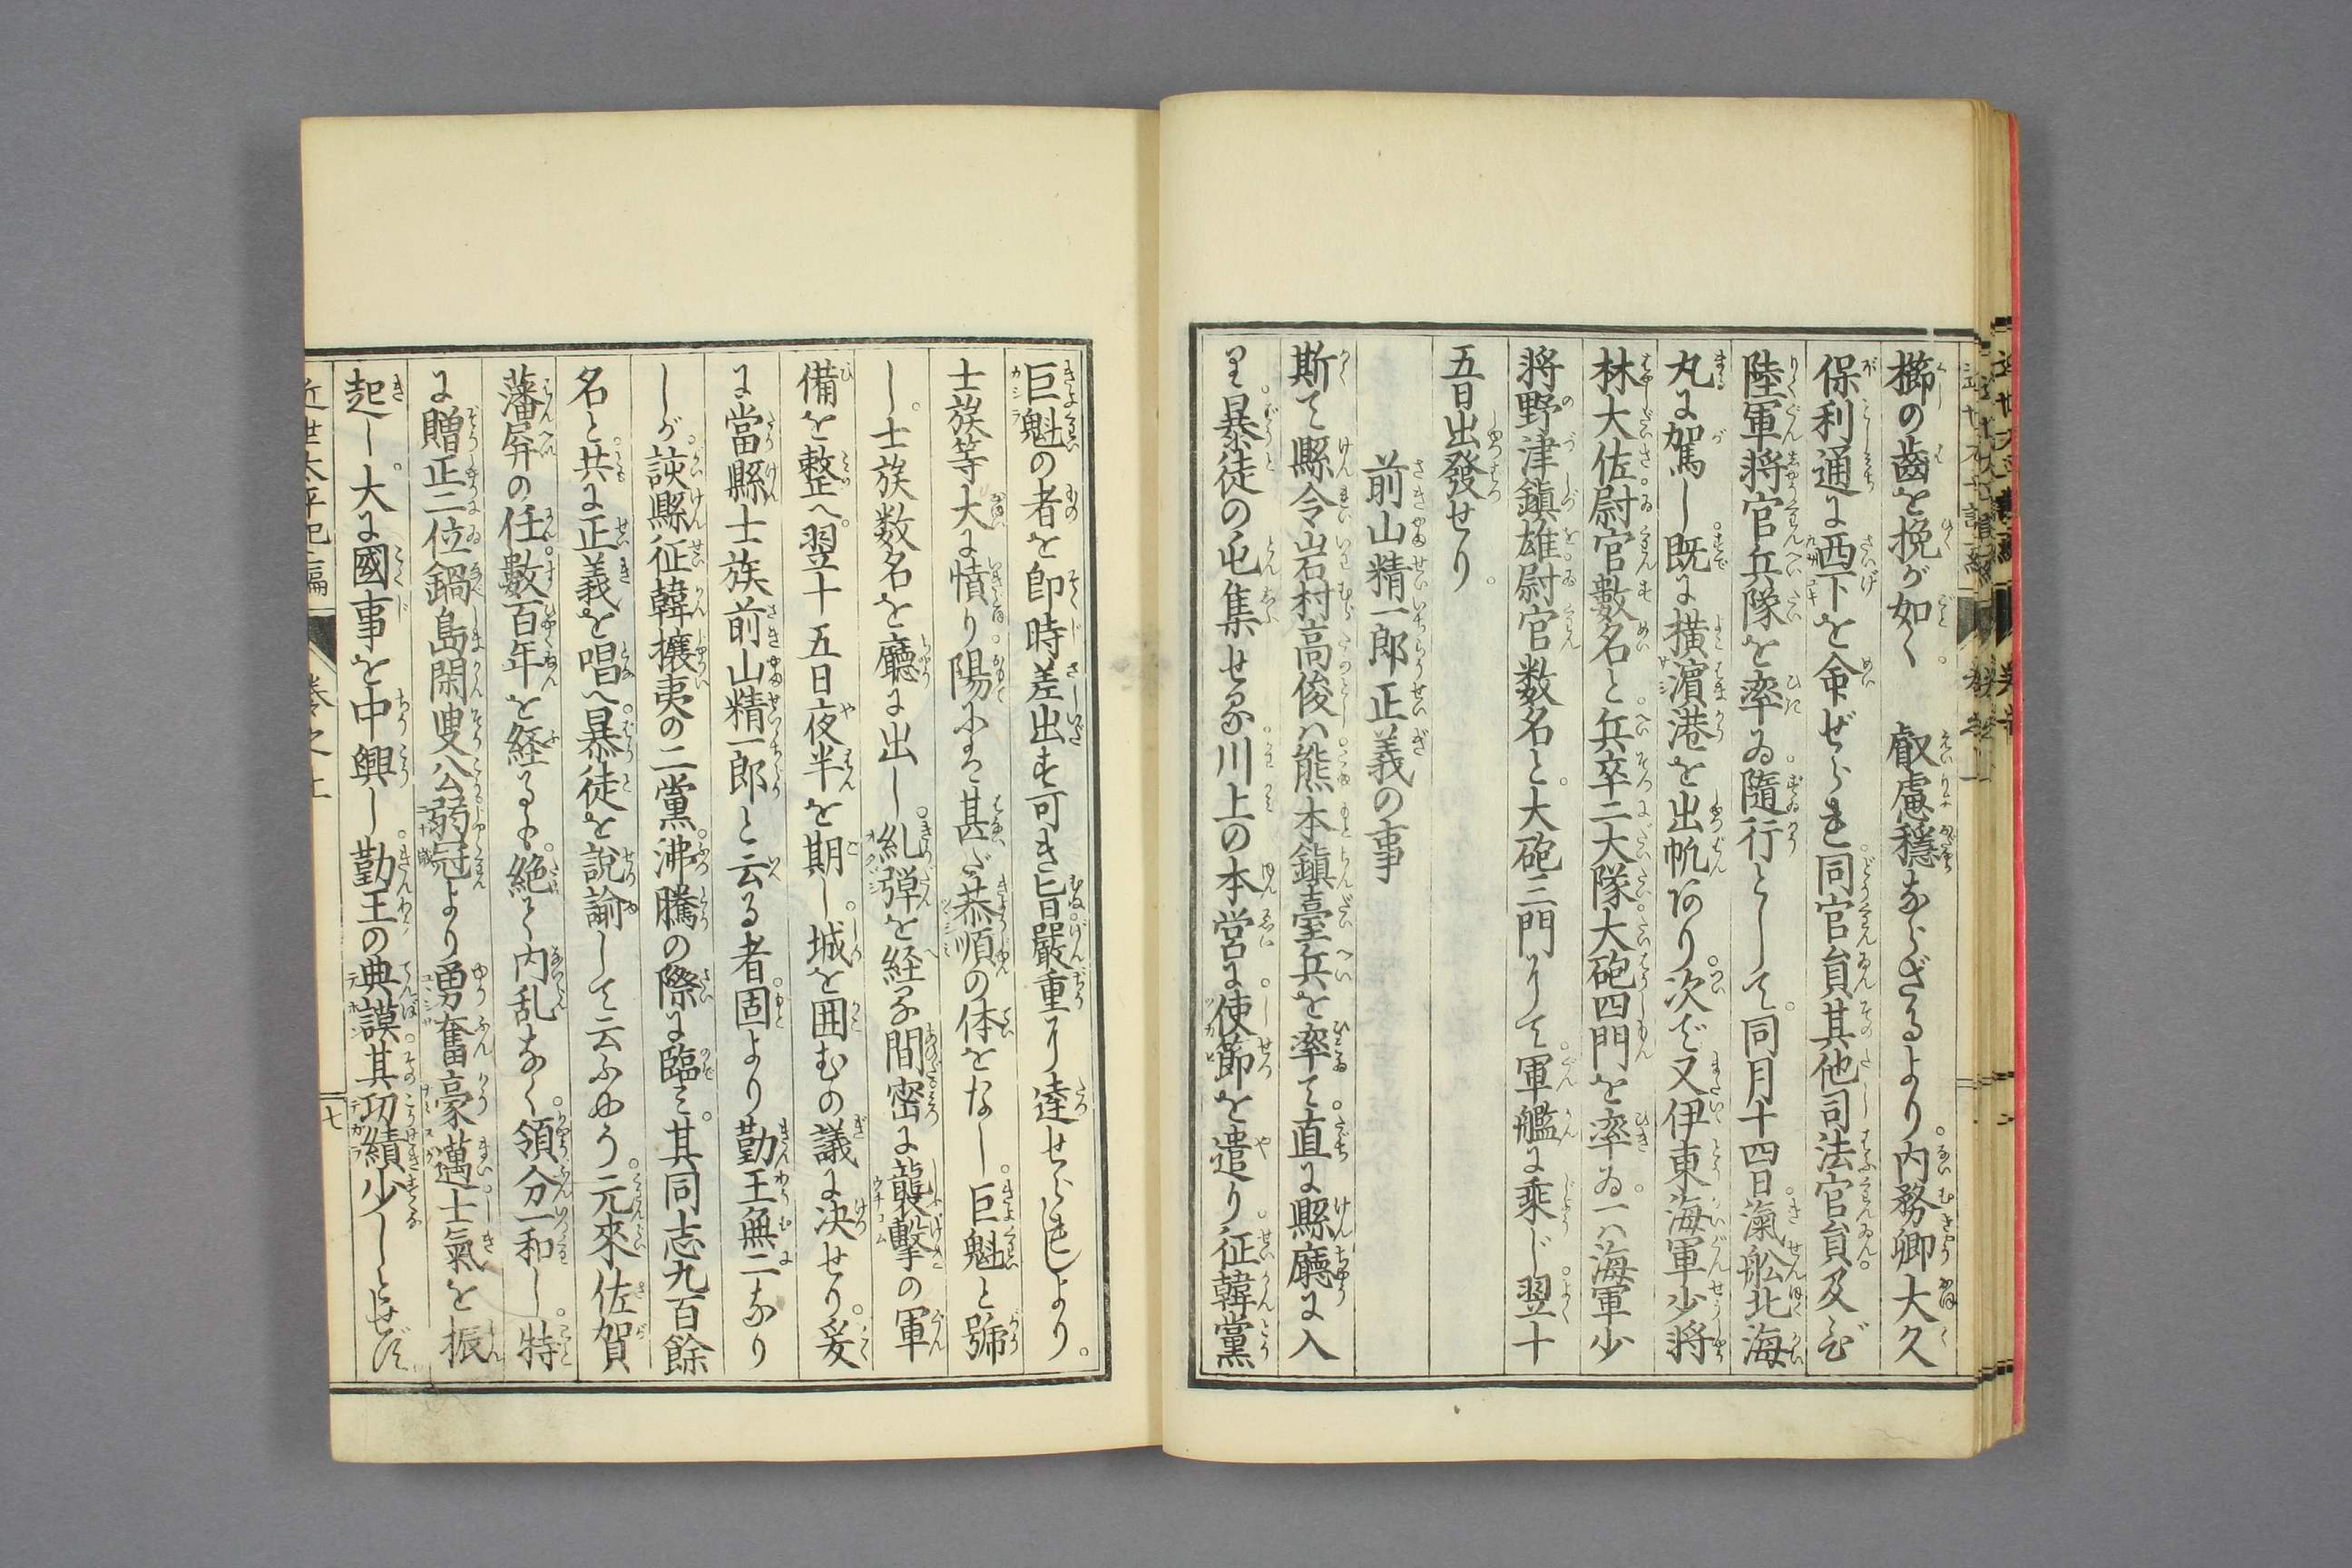 櫛の齒を挽が如く　叡慮穩ならざるより。内務卿大久
保利通に西下を命ぜられ。同官員其他司法官員及び
陸軍將官兵隊を率ゐ。隨行として。同月十四日。滊舩北海
丸に駕し。既に橫濵港を出帆あり。次で又伊東海軍少將
林大佐。尉官數名と。兵卒二大隊。大砲四門を率ゐ。一ハ海軍少
將野津鎭雄。尉官数名と。大砲三門りて。軍艦に乗じ。翌十
五日出發せり。
前山精一郎正義の事
斯て縣令岩村高俊ハ。熊本鎭臺兵を率て。直に縣廳に入
り。暴徒の屯集せる。川上の本営に。使節を遣り。征韓黨
巨魁の者を。即時差出す可き旨。嚴重に達せられしより。
士族等大に憤り。陽よハ甚だ恭順の体をなし。巨魁と號
し。士族数名を廳に出し。糺弾を経る間。密に襲擊の軍
備を整へ。翌十五日夜半を期し。城を囲むの議に决せり。爰
に當縣士族前山精一郎と云る者。固より勤王無二なり
しが。該縣征韓攘夷の二黨。沸騰の際に臨ミ。其同志九百餘
名と。共に正義を唱へ。暴徒を說諭して云ふやう。元來佐賀
藩屏の任。數百年を経るも。絶て内乱なく。領分一和し。特
に贈正二位鍋島閑叟公。弱冠より勇奮豪邁。士氣を振
起し。大に國事を中興し。勤王の典謨。其功績少しとせず。
近世太平記二編　巻之上　七